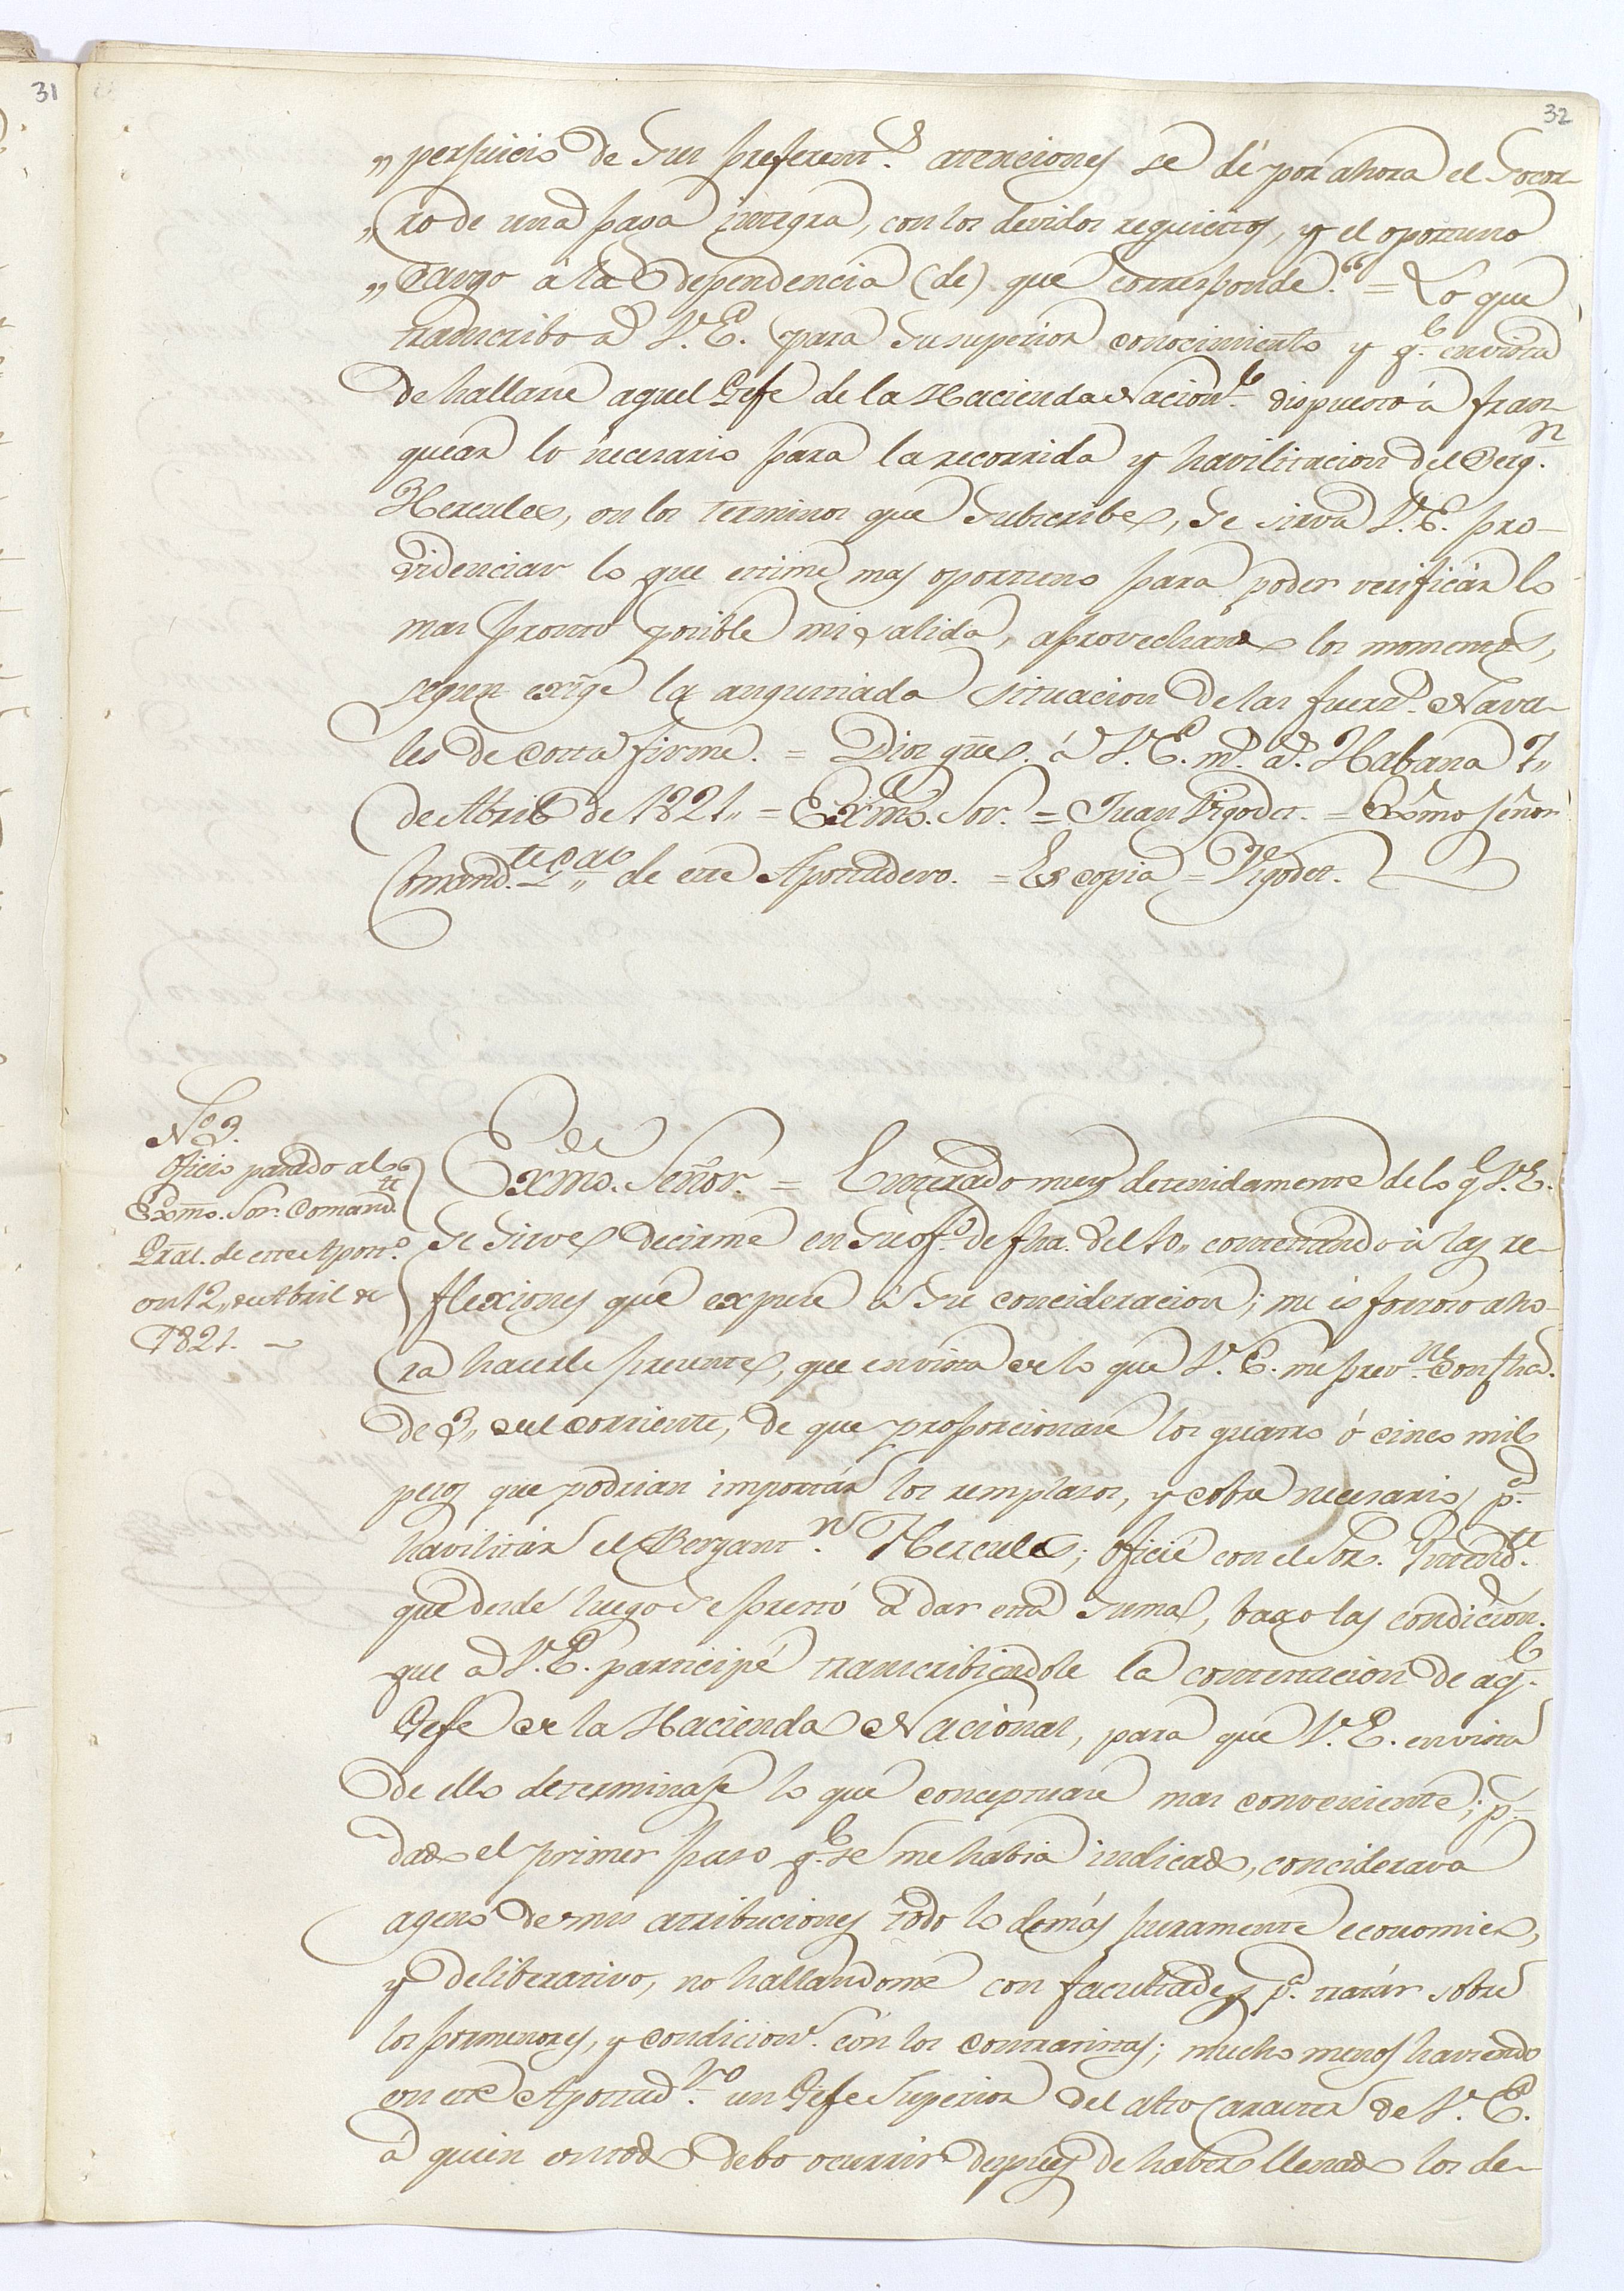 31
32
„ perjuicio de sus preferent.s atenciones se dé por ahora el socor-
„ ro de una paga integra, con los devidos requicitos, y el oportuno
„ cargo à la dependencia (de) que corresponde.“ = Lo que
transcribo a V.E. para su superior conocimiento y q.e en vista
de hallarse aquel Gefe de la Hacienda Nacion.l dispuesto à fran-
quear lo necesario para la recorrida y havilitacion del Berg.n
Hercules, en los terminos que subscribe, se sirva V.E. pro-
videnciar lo que estime mas oportuno para poder verificár lo
mas pronto posible mi salida, aprovechando los momentos,
segun exîge la angustiada situacion de las fuerz.s Nava-
les de Costa firme. = Dios gũe. à V.E. m.s a.s Habana 7„
de Abril de 1821„ = Exmõ. Sor. = Juan Vigodet. = Exmõ Señor
Comand.te Gral de este Apostadero. = Es copia = Vigodet.
N.o 3.
Oficio pasado al
Exmo. Sor. Comand.te
Gral. de este Apost.o
en 12„ de Abril de
1821. ~
Exmo. Señor. = Enterado muy detenidamente de lo q.e V.E.
se sirve decirme en su of.o de fha. del 10„ contestando à las re-
flexiones que expuse à su concideracion; me es forzoso aho-
ra hacerle presente, que en vista de lo que V.E. me prev.ne con fha.
de 3„ del corriente, de que proporcionase los quatro ó cinco mil
pesos que podrian importár los remplazos, y cobre necesario p.a
havilitár el Bergant.n Hercules; oficié con el Sor. Intend.te
que desde luego se prestó à dar esta suma, baxo las condicion.s
que a V.E. participé transcribiendole la contestacion de aq.l
Gefe de la Hacienda Nacional, para que V.E. en vista
de ello determinase lo que conceptuase mas conveniente; p.s
dado el primer paso q.e se me habia indicado, conciderava
ageno de mis atribuciones todo lo demás puramente economico,
y deliberativo, no hallandome con facultades p.a tratár sobre
los pormenores, y condicion.s con los contratistas; mucho menos haviendo
en este Apostad.ro un Gefe Superior del alto caracter de V.E.
à quien en todo debo ocurrir despues de haber llenado los de-